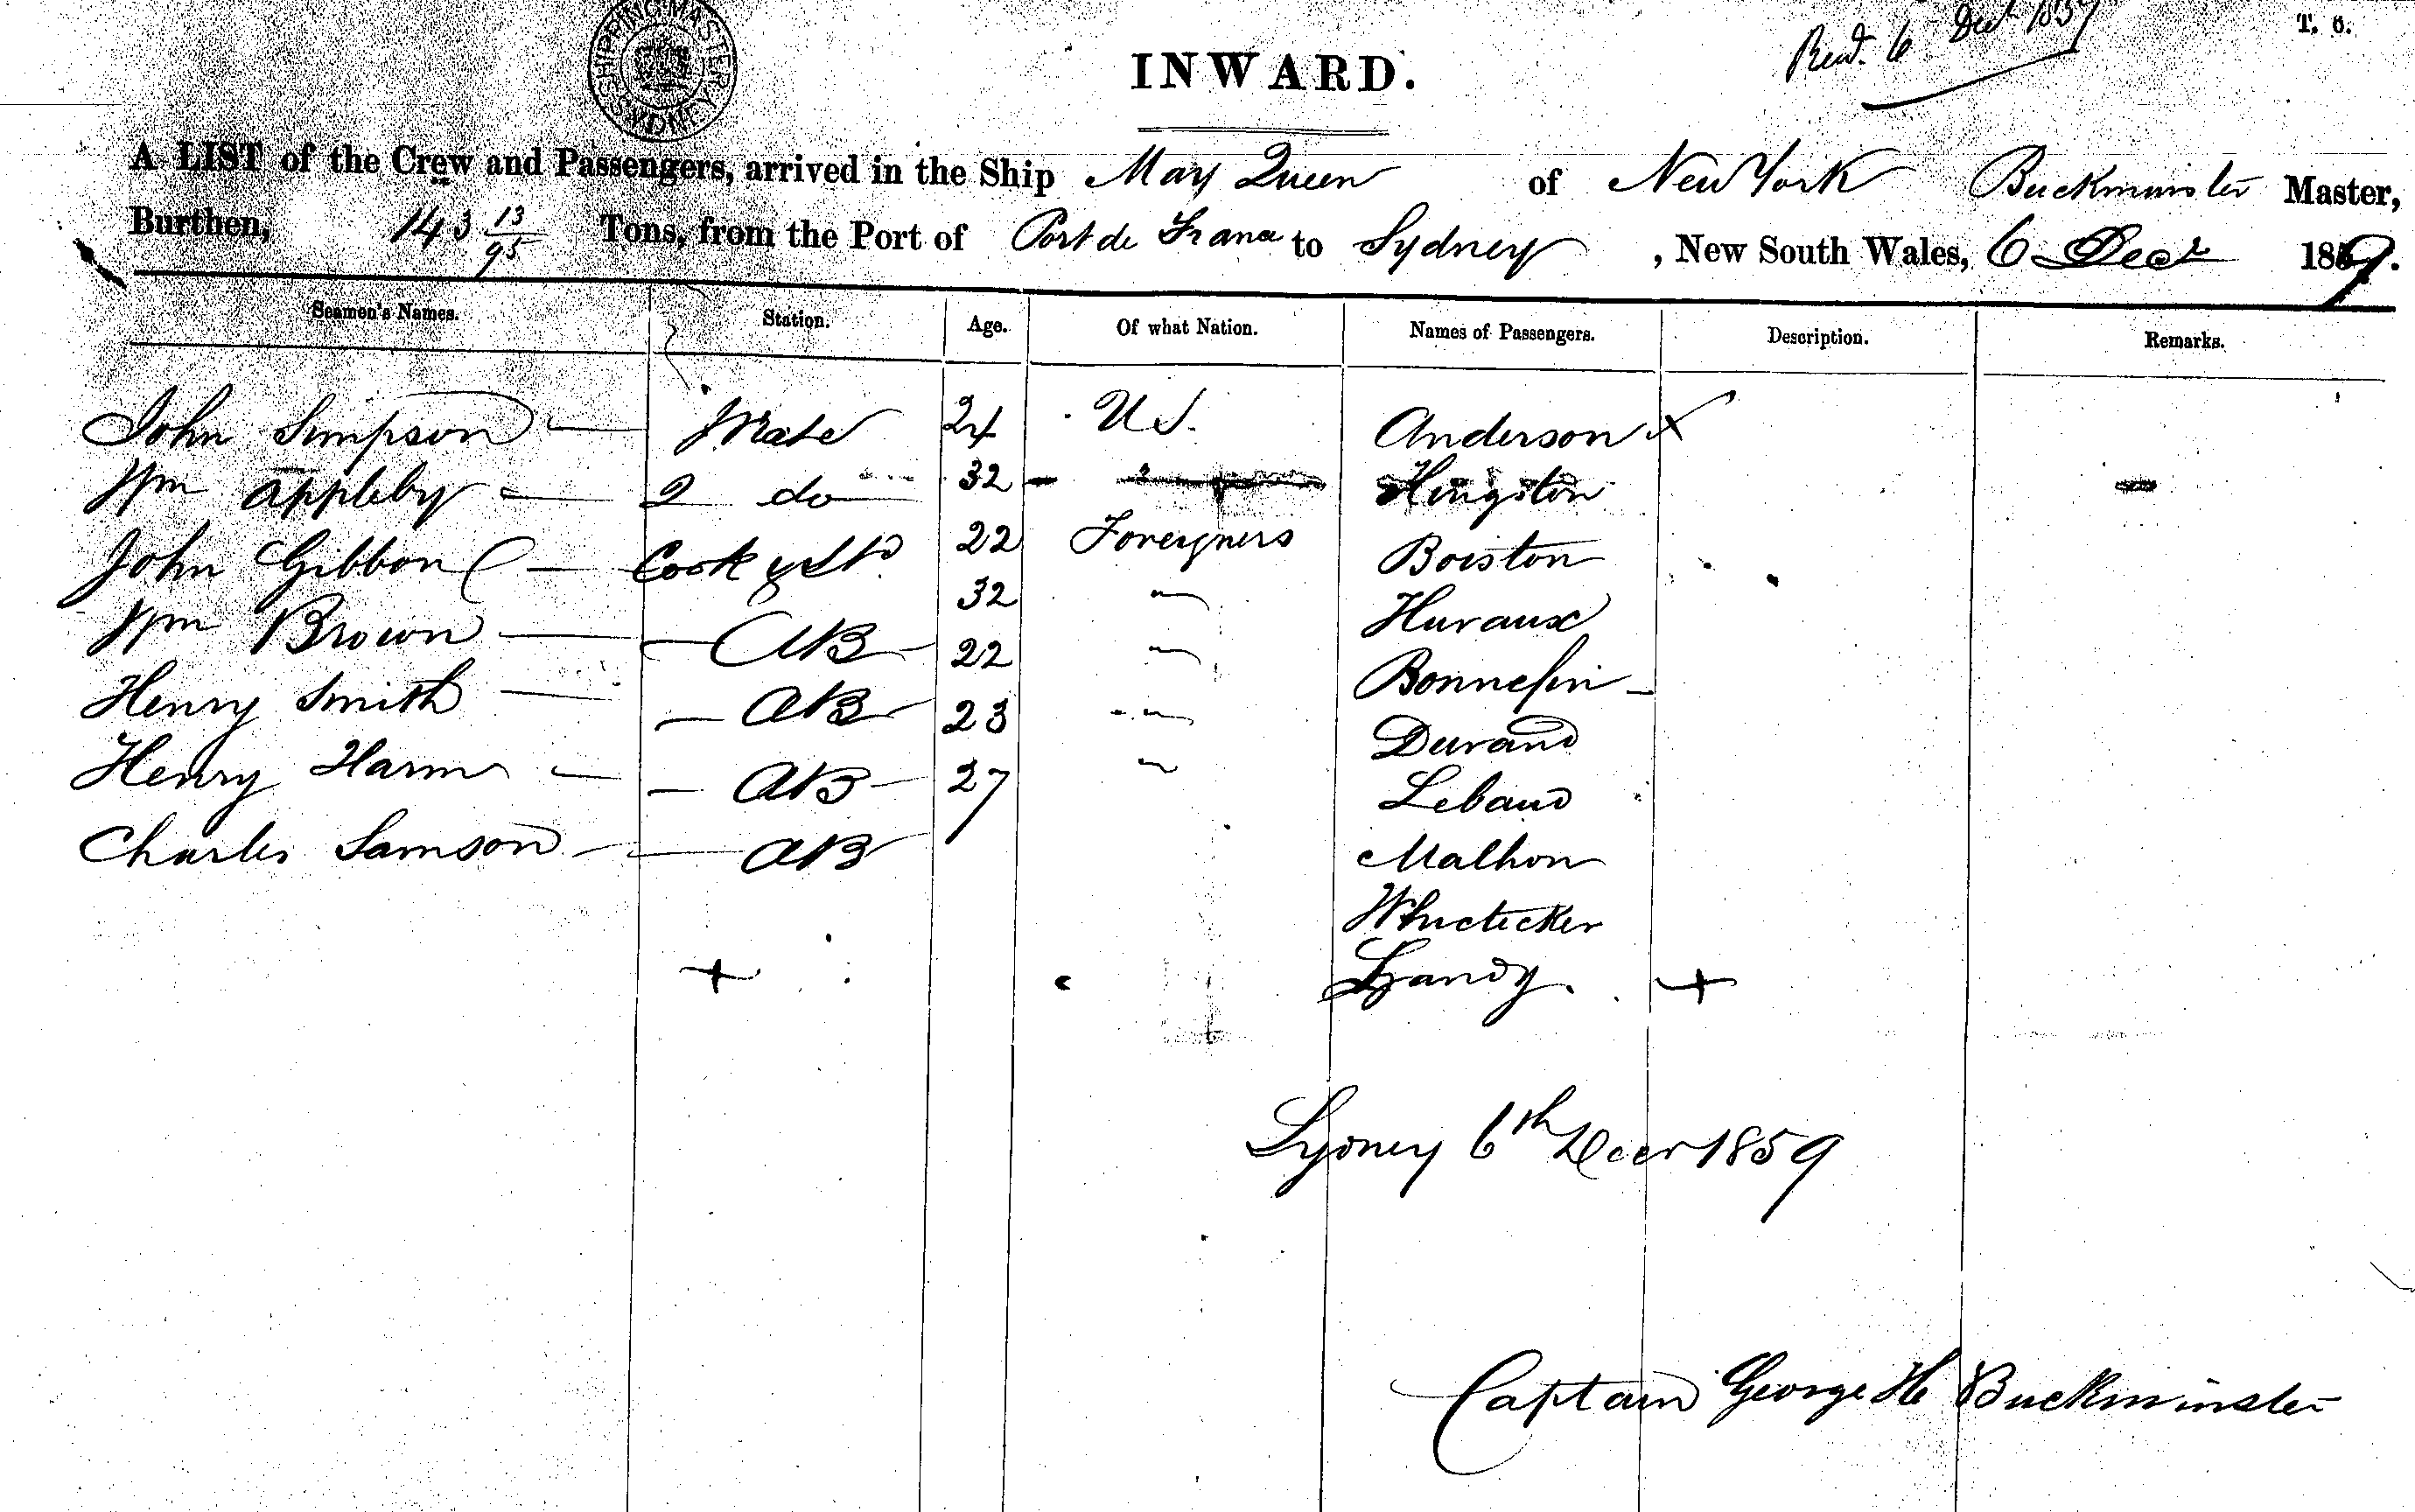 SHIPPING MASTER SYDNEY
INWARD.
Recd. 6 Decr 1859
T. O.
A LIST of the Crew and Passengers, arrived in the Ship May Queen of New York Buckminster Master,
Burthen, 143 13/95 Tons, from the Port of Port de France to Sydney, New South Wales, 6 Decr 1859.
Seamen's Names. Station. Age. Of what Nation. Names of Passengers. Description. Remarks.
John Simpson — Mate 24 U S. Anderson x
Wm Appleby — 2 do 32 — Hingston —
John Gibbon — Cook & Std 22 Foreigners Boiston
Wm Brown — AB — 32 " Huraux
Henry Smith — AB — 22 " Bonnefin —
Henry Harm — AB — 23 " Durand
Charles Samson — AB 27 " Lebaud
Malhon
Landy. +
Sydney 6th Decer 1859
Captain George H Buckminster